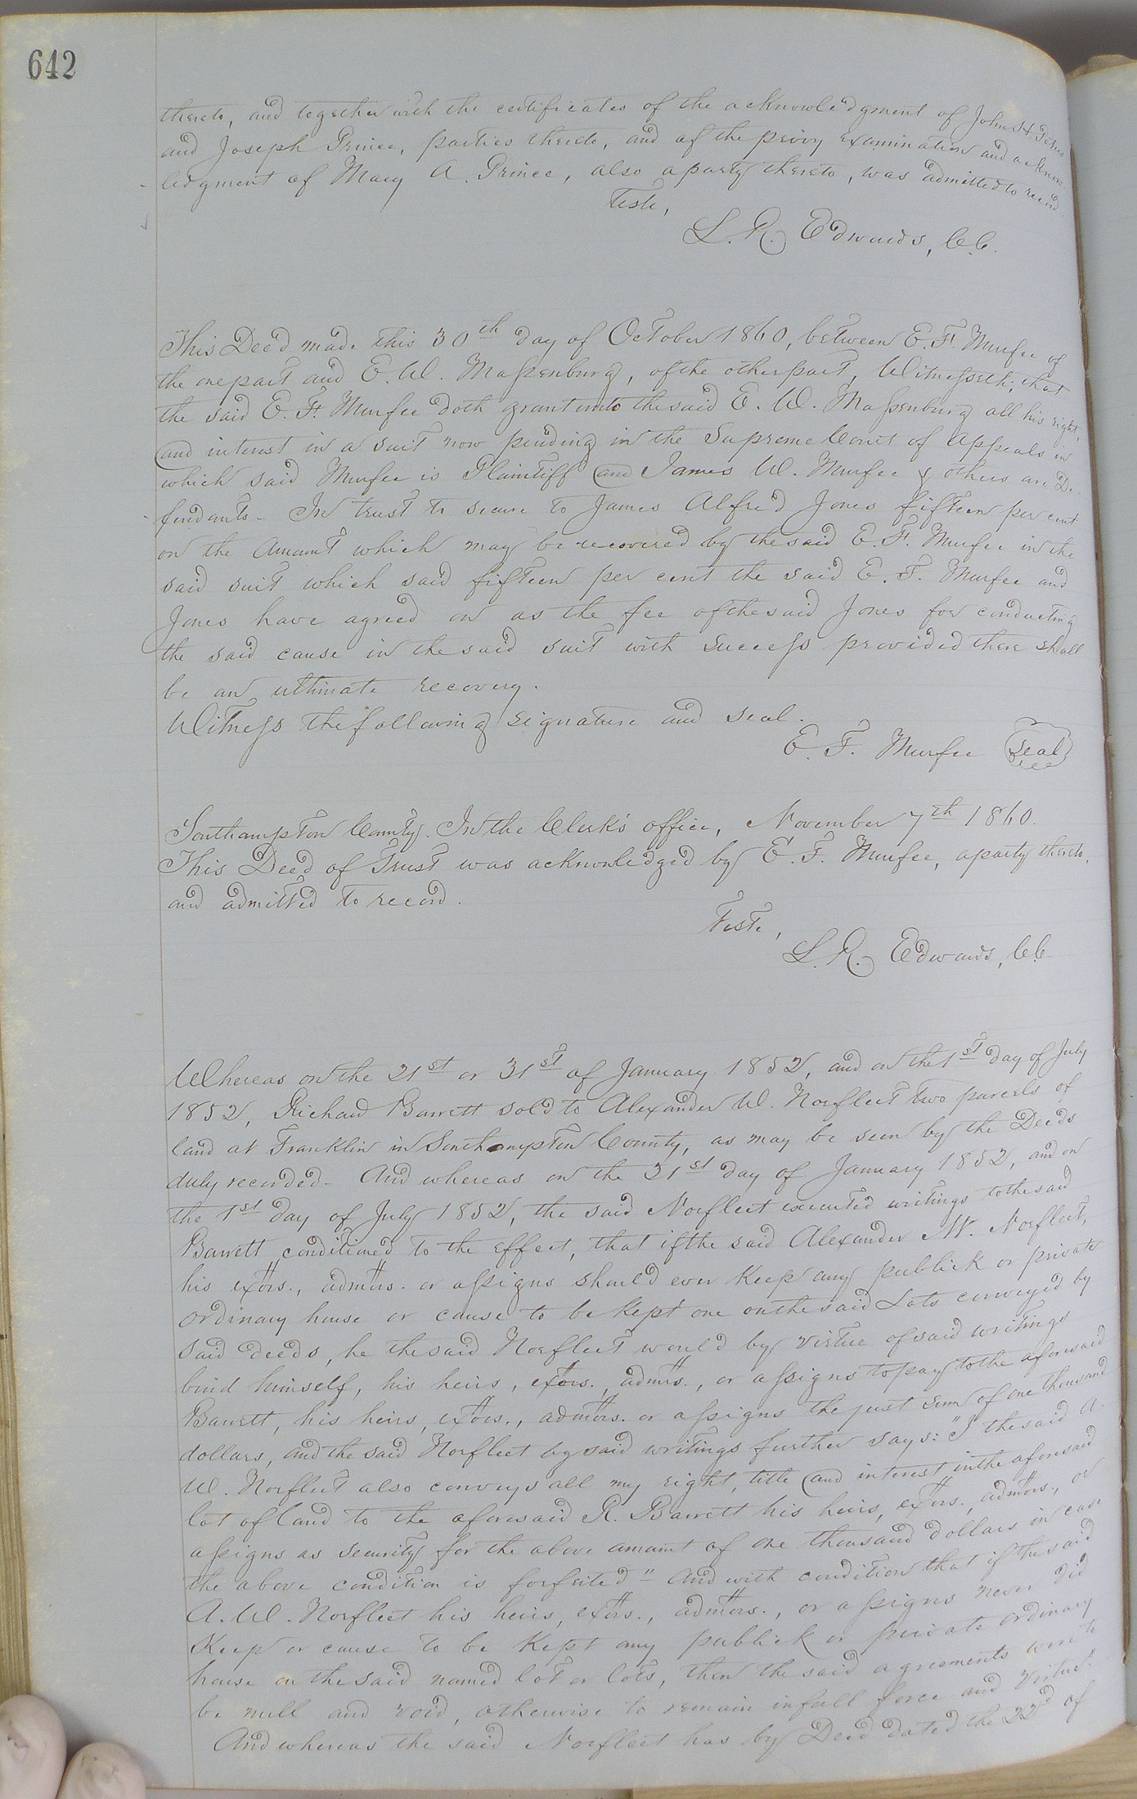 642
thereto, and together with the certificates of the acknowledgment of John H.
and Joseph Prince, parties thereto, and of the privy examination and acknow-
ledgment of Mary A. Prince, also a party thereto, was admitted to record
Teste,
L. R. Edwards, C.C.
This Deed made this 30th day of October 1860, between E. F. Murfee of
the one part and E. W. Massenburg, of the other part, Witnesseth; that
the said E. F. Murfee doth grant unto the said E. W. Massenburg all his right,
and interest in a suit now pending in the Supreme Court of Appeals in
which said Murfee is Plaintiff and James W. Murfee & others are De-
fendants - In trust to secure to James Alfred Jones fifteen per cent
on the amount which may be recovered by the said E. F. Murfee in the
said suit which said fifteen per cent the said E. F. Murfee and
Jones have agreed on as the fee of the said Jones for conducting
the said cause in the said suit with success provided there shall
be an ultimate recovery.
Witness the following signature and seal.
E. F. Murfee Seal
Southampton County. In the Clerk's office, November 7th 1860.
This Deed of Trust was acknowledged by E. F. Murfee, a party thereto,
and admitted to record.
Teste,
L. R. Edwards, C.C.
Whereas on the 21st or 31st of January 1852, and on the 1st day of July
1852, Richard Barrett sold to Alexander W. Norfleet two parcels of
land at Franklin in Southampton County, as may be seen by the Deeds
duly recorded - And whereas on the 31st day of January 1852, and on
the 1st day of July 1852, the said Norfleet executed writings to the said
Barrett conditioned to the effect, that if the said Alexander W. Norfleet,
his exors., admors. or assigns should ever keep any publick or private
ordinary house or cause to be kept one on the said Lots conveyed by
said deeds, he the said Norfleet would by virtue of said writings
bind himself, his heirs, exors., admrs., or assigns to pay to the aforesaid
Barrett, his heirs, exors., admors. or assigns the just sum of one thousand
dollars, and the said Norfleet by said writings further says: "I the said A.
W. Norfleet also conveys all my right, title and interest in the aforesaid
lot of land to the aforesaid R. Barrett his heirs, exors., admors., or
assigns as security for the above amount of one thousand dollars in case
the above condition is forfeited" - And with condition that if the said
A. W. Norfleet his heirs, exors., admors., or assigns never did
keep or cause to be kept any publick or private ordinary
house on the said named lot or lots, then the said agreements were to
be null and void, otherwise to remain in full force and virtue.
And whereas the said Norfleet has by Deed dated the 22d of